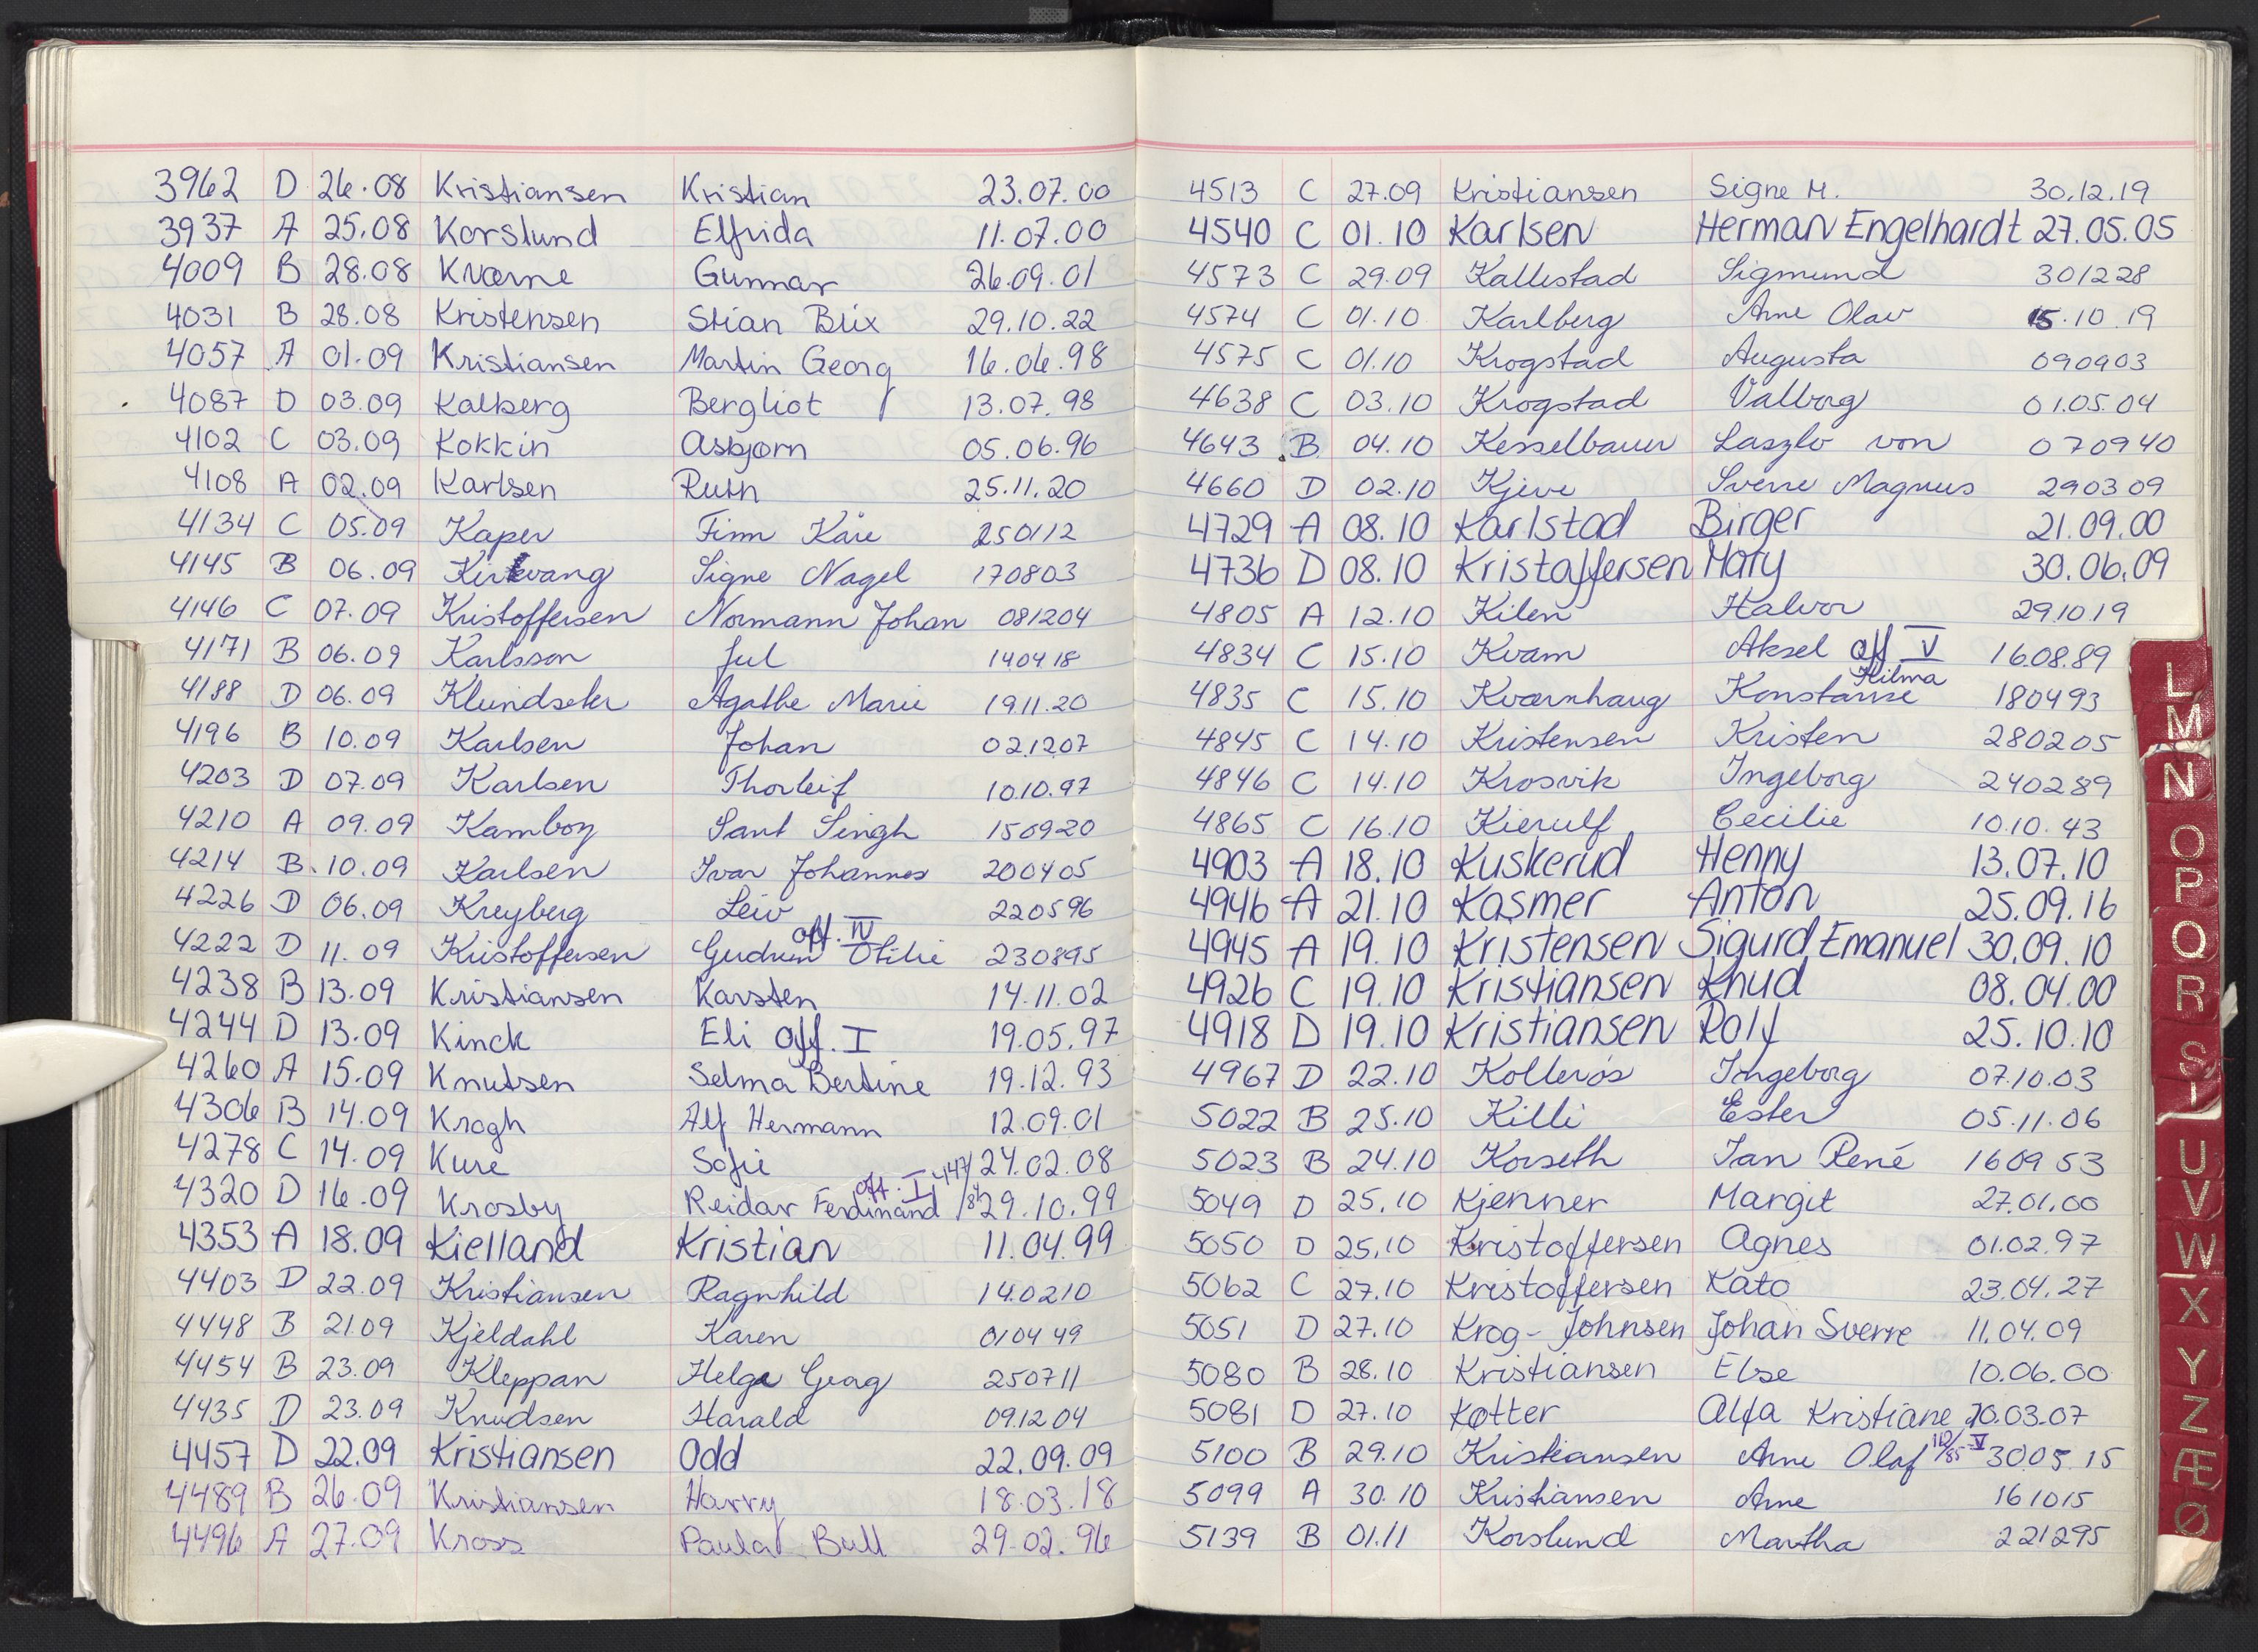 3962 D 26.08 Kristiansen Kristian 23.07.00
3937 A 25.08 Korslund Elfrida 11.07.00
4009 B 28.08 Kværne Gunnar 26.09.01
4031 B 28.08 Kristensen Stian Blix 29.10.22
4057 A 01.09 Kristiansen Martin Georg 16.06.98
4087 D 03.09 Kalberg Bergliot 13.07.98
4102 C 03.09 Kokkin Asbjørn 05.06.96
4108 A 02.09 Karlsen Ruth 25.11.20
4134 C 05.09 Kaper Finn Kåre 250112
4145 B 06.09 Kirkvang Signe Nagel 170803
4146 C 07.09 Kristoffersen Normann Johan 081204
4171 B 06.09 Karlsson Jul 140418
4188 D 06.09 Klundseter Agathe Marie 1911.20
4196 B 10.09 Karlsen Johan 021207
4203 D 07.09 Karlsen Thorleif 10.10.97
4210 A 09.09 Kamboy Sant Singh 150920
4214 B. 10.09 Karlsen Ivar Johannes 200405
4226 D 06.09 Kreyberg Leiv 220596
off. IV
4222 D 11.09 Kristoffersen Gudrun Otilie 230895
4238 B 13.09 Kristiansen Karsten 14.11.02
4244 D 13.09 Kinck Eli off. I 19.05.97
4260 A 15.09 Knutsen Selma Bertine 19.12.93
4306 B 14.09 Krogh Alf Hermann 12.09.01
4278 C 14.09 Kure Sofie 24.02.08
off. I 447/84
4320 D 16.09 Krosby Reidar Ferdinand 29.10.99
4353 A 18.09 Kielland Kristian 11.04.99
4403 D 22.09 Kristiansen Ragnhild 140210
4448 B 21.09 Kjeldahl Karen 010449
4454 B 23.09 Kleppan Helge Georg 250711
4435 D 23.09 Knudsen Harald 091204
4457 D 22.09 Kristiansen Odd 22.09.09
4489 B 26.09 Kristiansen Harry 18.03.18
4496 A 27.09 Kross Paula Bull 29.02.96
4513 C 27.09 Kristiansen Signe M. 30.12.19
4540 C 01.10 Karlsen Herman Engelhardt 27.05.05
4573 C 29.09 Kallestad Sigmund 301228
4574 C 01.10 Karlberg Arne Olav 15.10.19
4575 C 01.10 Krogstad Augusta 090903
4638 C 03.10 Krogstad Valborg 01.05.04
4643 B 04.10 Kesselbauer Laszlo von 070940
4660 D 02.10 Kjeve Sverre Magnus 290309
4729 A 08.10 Karlstad Birger 21.09.00
4736 D 08.10 Kristaffersen Mary 30.06.09
4805 A 12.10 Kilen Halvor 291019
4834 C 15.10 Kvam Aksel off V 16.08.89
Hilma
4835 C 15.10 Kværnhaug Konstanse 180493
4845 C 14.10 Kristensen Kristen 280205
4846 C 14.10 Krosvik Ingeborg 240289
4865 C 16.10 Kierulf Cecilie 10.10.43
4903 A 18.10 Kuskerud Henny 13.07.10
4946 A 21.10 Kasmer Anton 25.09.16
4945 A 19.10 Kristensen Sigurd Emanuel 30.09.10
4926 C 19.10 Kristiansen Knud 08.04.00
4918 D 19.10 Kristiansen Rolf 25.10.10
4967 D 22.10 Kollerøs Ingeborg 07.10.03
5022 B 25.10 Killi Ester 05.11.06
5023 B 24.10 Korseth Jan René 160953
5049 D 25.10 Kjenner Margit 27.01.00
5050 D 25.10 Kristoffersen Agnes 01.02.97
5062 C 27.10 Kristoffersen Kato 23.04.27
5051 D 27.10 Krog-Johnsen Johan Sverre 11.04.09
5080 B 28.10 Kristiansen Else 10.06.00
5081 D 27.10 Køtter Alfa Kristiane 20.03.07
5100 B 29.10 Kristiansen Arne Olaf 110/85 V 3005.15
5099 A 30.10 Kristiansen Arne 161015
5139 B 01.11 Korslund Martha 221295
L
M
N
O
P
Q
R
S
T
U
V
W
X
Y
Z
Æ
Ø